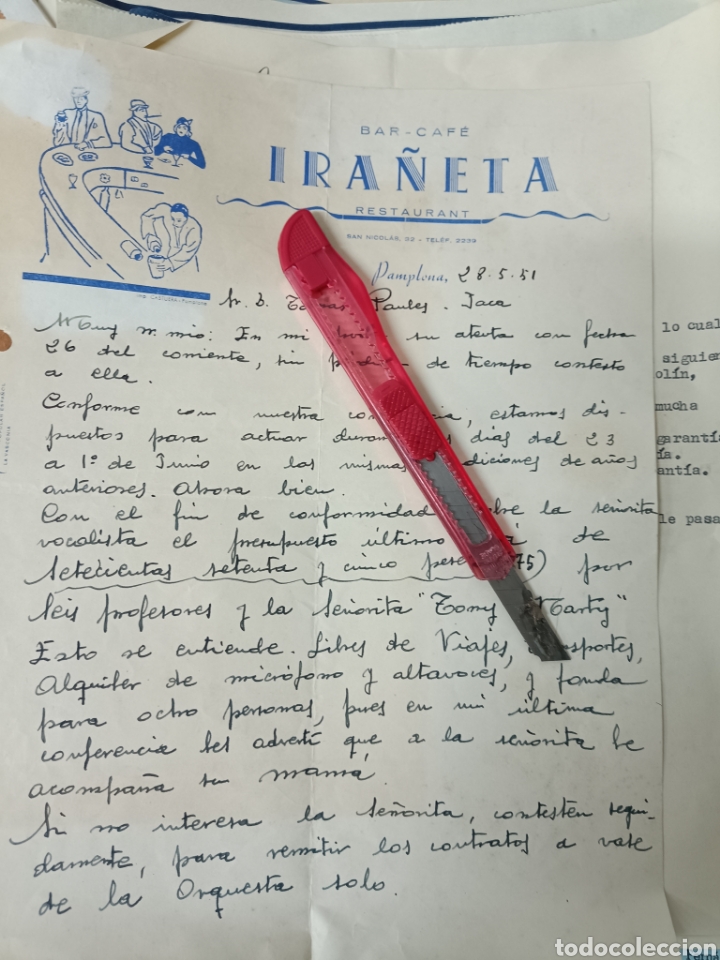 BAR-CAFÉ
IRAÑETA
RESTAURANT
SAN NICOLÁS, 32 - TELÉF. 2239
Pamplona, 28.5.51
Sr. D. Paules - Jaca
Muy sr. mio: En mi su atenta con fecha
26 del corriente, sin de tiempo contesto
a ella.
Conforme con nuestra estamos dis-
puestos para actuar días del 23
a 1º de Junio en las mismas diciones de años
anteriores. Ahora bien.
Con el fin de conformidad la señorita
vocalista el presupuesto último de
Setecientas setenta y cinco 75) por
Seis profesores y la Señorita "Tomy Marty"
Esto se entiende. Libres de Viajes, sportes,
Alquiler de micrófono y altavoces, y fonda
para ocho personas, pues en mi última
conferencia les advertí que a la señorita le
acompaña su mamá,
Si no interesa la Señorita, contesten segui-
damente, para remitir los contratos a vase
de la Orquesta solo.
lo cual
siguien
olín,
mucha
garantía
ía.
antía.
le pasa
todocoleccion